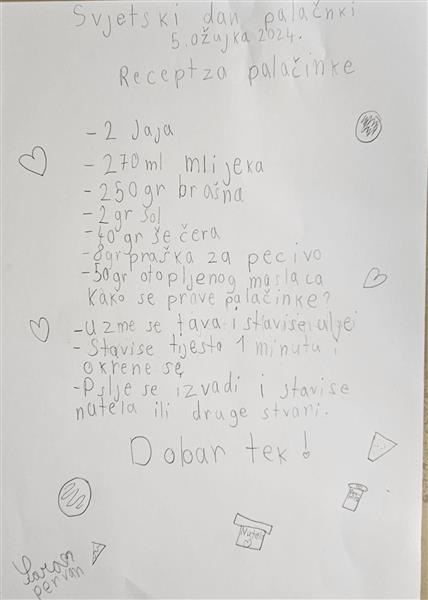 Svjetski dan palačnki
5.ožujka 2024.
Recept za palačinke
-2 Jaja
-270ml mlijeka
-250gr brašna
-2gr šol
-40gr še čera
-8gr praška za pecivo
-50gr otopljenog maslaca
Kako se prave palačinke?
-Uzme se tava i stavise ulje i
-Stavise tijesto 1 minutu i
okrene se
-Pslje se izvadi i stavise
nutela ili druge stvari.
Dobar tek!
Nutela
pervan